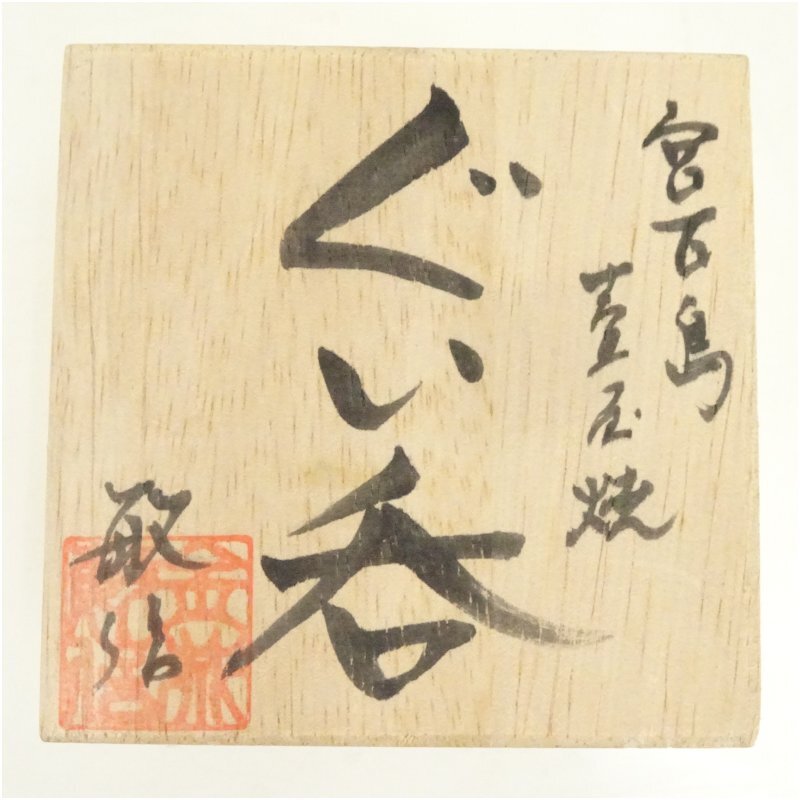 宮古島
壺屋焼
ぐい呑
敏